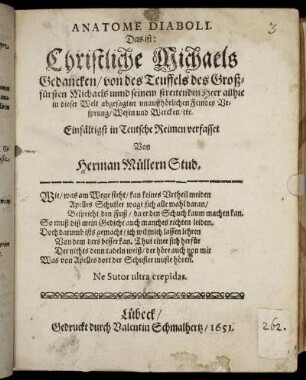 3
ANATOME DIABOLI.
Das ist:
Christliche Michaels
Gedancken / von des Teuffels des Groß-
fürsten Michaels unnd seinem streitenden Heer allhie
in dieser Welt abgesagten unauffhörlichen Feindes Ur-
sprung / Wesen und Wercken / etc.
Einfältigst in Teutsche Reimen verfasset
Von
Herman Müllern Stud.
Wer / was am Wege stehet / kan keines Urtheil meiden
Apelles Schuster wagt sich alle mahl daran /
Bespricht den Fuß / da er den Schuch kaum machen kan.
So muß diß mein Gedicht auch manches richten leiden.
Doch darumb ists gemacht / ich wil mich lassen lehren
Von dem ders besser kan. Thut einer sich herfür
Der nichts denn tadeln weiß / der hör auch von mir
Was von Apelles dort der Schuster muste hören.
Ne Sutor ultra crepidas.
Lübeck /
Gedruckt durch Valentin Schmalhertz / 1651.
262.